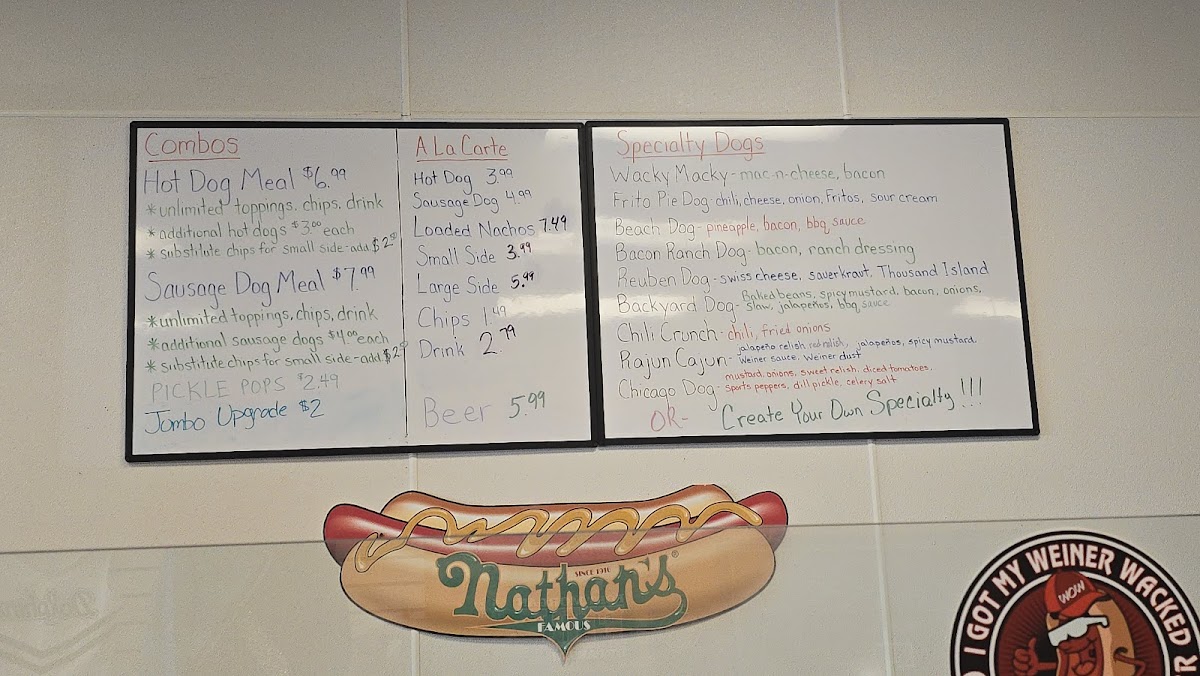 Combos
Hot Dog Meal $6.99
*unlimited toppings, chips, drink
*additional hot dogs $3.00 each
*substitute chips for small side-add $2
Sausage Dog Meal $7.99
*unlimited toppings, chips, drink
*additional sausage dogs $4.00 each
*substitute chips for small side-add $2
PICKLE POPS $2.49
Jumbo Upgrade $2
A La Carte
Hot Dog 3.99
Sausage Dog 4.99
Loaded Nachos 7.49
Small Side 3.99
Large Side 5.99
Chips 1.49
Drink 2.79
Beer 5.99
Specialty Dogs
Wacky Macky-mac-n-cheese, bacon
Frito Pie Dog-chili, cheese, onion, Fritos, sour cream
Beach Dog-pineapple, bacon, bbq sauce
Bacon Ranch Dog-bacon, ranch dressing
Reuben Dog-swiss cheese, sauerkraut, Thousand Island
Backyard Dog-Baked beans, spicy mustard, bacon, onions,
slaw, jalapeños, bbq sauce
Chili Crunch-chili, fried onions
Rajun Cajun-jalapeño relish, red relish, jalapeños, spicy mustard,
Weiner sauce, Weiner dust
Chicago Dog-mustard, onions, sweet relish, diced tomatoes,
sports peppers, dill pickle, celery salt
OR- Create Your Own Specialty!!!
SINCE 1916
Nathan's®
FAMOUS
I GOT MY WEINER WACKED
WOW